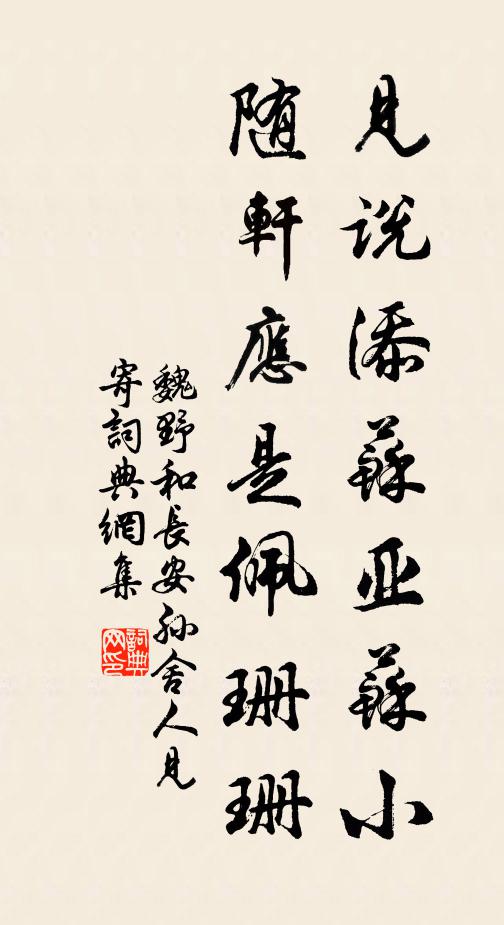 见说添蘇亚蘇小
随軒應是佩珊珊
魏野和長安孫舍人見
寄詞典網集
詞典网印